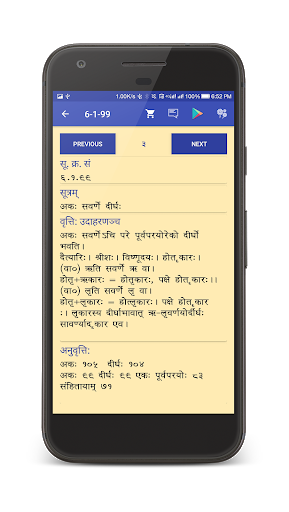 1.00K/s 100% 6:52 PM
6-1-99
PREVIOUS ३ NEXT
सू. क्र. सं
६.१.९९
सूत्रम्
अकः सवर्णे दीर्घः
वृत्ति: उदाहरणञ्च
अकः सवर्णेऽचि परे पूर्वपरयोरेको दीर्घो
भवति।
दैत्यारिः। श्रीशः। विष्णूदयः। होतॄकारः।
(वा०) ऋति सवर्णे ऋ वा।
होतृ+ऋकारः = होतृकारः, पक्षे होतॄकारः।
(वा०) लृति सवर्णे लृ वा।
होतृ+लृकारः = होत्लृकारः। पक्षे होतॄकार
ः। लृकारस्य दीर्घाभावात् ऋ-लृवर्णयोर्दीर्घः
सावर्ण्याद् ॠकार एव।
अनुवृत्ति:
अकः १०५ दीर्घः १०४
अकः ९९ दीर्घः ९९ एकः पूर्वपरयोः ८३
संहितायाम् ७१